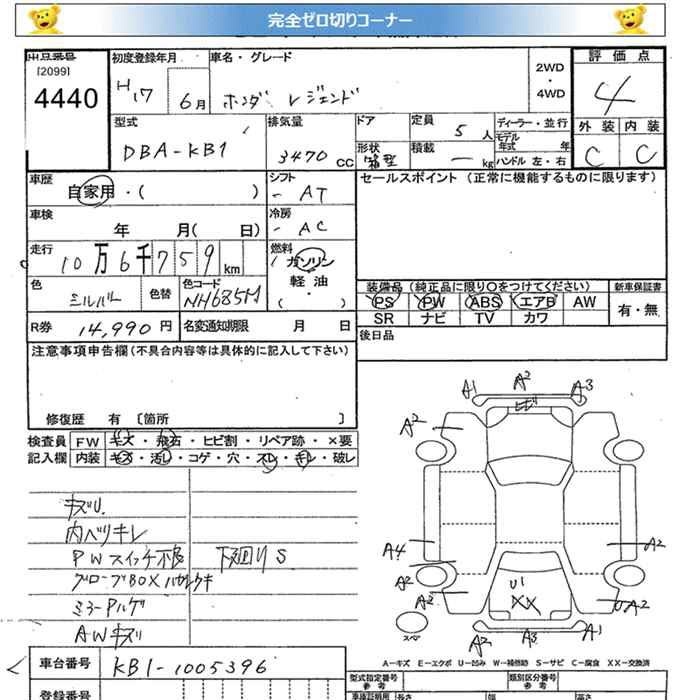 完全ゼロ切りコーナー
出品番号
[2099]
4440
初度登録年月
H17 6月
車名・グレード
ホンダ レジェンド
2WD
・
4WD
評価点
4
外装 内装
C C
型式
DBA-KB1
排気量
3470 CC
ドア
形状
箱型
定員
5 人
積載
ー kg
ディーラー・並行
モデル年式 年
ハンドル 左・右
車歴
自家用・( )
シフト
- AT
車検
年 月( 日)
冷房
- AC
走行
10万6千759km
燃料
ガソリン
軽油
( ・ )
色
シルバー
色替
色コード
NH685M
R券 14,990円
名変通知期限 月 日
セールスポイント(正常に機能するものに限ります)
装備品(純正品に限り○をつけてください)
PS PW ABS エアB AW
SR ナビ TV カワ
新車保証書
有・無
後日品
注意事項申告欄(不具合内容等は具体的に記入して下さい)
修復歴 有 〔箇所 〕
検査員記入欄
FW キズ・飛石・ヒビ割・リペア跡・×要
内装 キズ・汚レ・コゲ・穴・スレ・キレ・破レ
キズU.
内ベリキレ
PWスイッチ不良 下廻りS
グローブBOX
ミラーPハゲ
AWキズ
A1 A2 A3
ヒビ
A2
A4 A2
A2
A2 U1 XX A2
スペア
A2 A3 A1
A-キズ E-エクボ U-凹み W-補修跡 S-サビ C-腐食 XX-交換済
車台番号 KB1-1005396
登録番号
型式指定番号
参考
類別区分番号
参考
長さ 幅 高さ